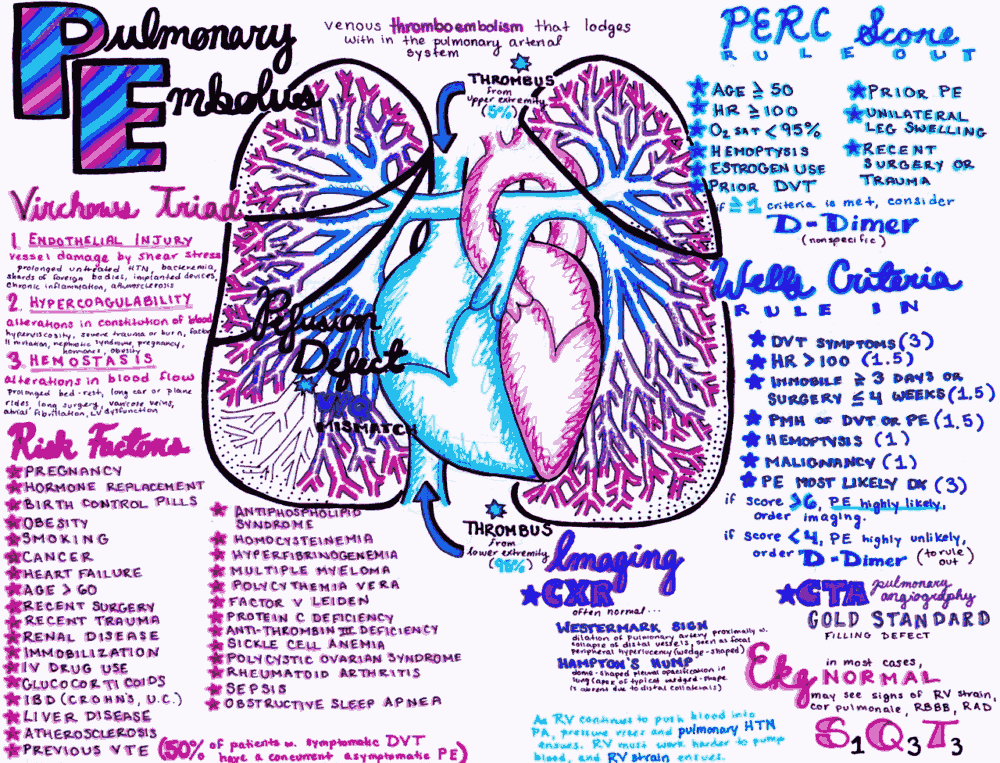 Pulmonary
Embolus
venous thromboembolism that lodges
with in the pulmonary arterial
system
THROMBUS
from
upper extremity
(5%)
Virchows Triad
1 ENDOTHELIAL INJURY
vessel damage by shear stress
prolonged untreated HTN, bacteremia,
shards of foreign bodies, implanted devices,
chronic inflammation, atherosclerosis
2 HYPERCOAGULABILITY
alterations in constitution of blood
hyperviscosity, severe trauma or burn, factor
II mutation, nephrotic syndrome, pregnancy,
hormones, obesity
3 HEMOSTASIS
alterations in blood flow
Prolonged bed-rest, long car or plane
rides, long surgery, varicose veins,
atrial fibrillation, LV dysfunction
Pefusion
Defect
V/Q
MISMATCH
Risk Factors
PREGNANCY
HORMONE REPLACEMENT
BIRTH CONTROL PILLS
OBESITY
SMOKING
CANCER
HEART FAILURE
AGE > 60
RECENT SURGERY
RECENT TRAUMA
RENAL DISEASE
IMMOBILIZATION
IV DRUG USE
GLUCOCORTICOIDS
IBD (CROHNS, U.C.)
LIVER DISEASE
ATHEROSCLEROSIS
PREVIOUS VTE
ANTIPHOSPHOLIPID
SYNDROME
HOMOCYSTEINEMIA
HYPERFIBRINOGENEMIA
MULTIPLE MYELOMA
POLYCYTHEMIA VERA
FACTOR V LEIDEN
PROTEIN C DEFICIENCY
ANTI-THROMBIN III DEFICIENCY
SICKLE CELL ANEMIA
POLYCYSTIC OVARIAN SYNDROME
RHEUMATOID ARTHRITIS
SEPSIS
OBSTRUCTIVE SLEEP APNEA
(50% of patients w. symptomatic DVT
have a concurrent asymptomatic PE)
THROMBUS
from
lower extremity
PERC Score
RULE OUT
AGE ≥ 50
HR ≥ 100
O₂ sat < 95%
HEMOPTYSIS
ESTROGEN USE
PRIOR DVT
PRIOR PE
UNILATERAL
LEG SWELLING
RECENT
SURGERY OR
TRAUMA
if ≥ 1 criteria is met, consider
D-Dimer
(nonspecific)
Wells Criteria
RULE IN
DVT SYMPTOMS (3)
HR > 100 (1.5)
IMMOBILE ≥ 3 DAYS OR
SURGERY ≤ 4 WEEKS (1.5)
PMH OF DVT OR PE (1.5)
HEMOPTYSIS (1)
MALIGNANCY (1)
PE MOST LIKELY DX (3)
if score >6, PE highly likely,
order imaging.
if score <4, PE highly unlikely,
order D-Dimer (to rule out)
Imaging
CXR
often normal...
WESTERMARK SIGN
dilation of pulmonary artery proximally w.
collapse of distal vessels, seen as focal
peripheral hyperlucency (wedge-shaped)
HAMPTON'S HUMP
dome-shaped pleural opacification in
lung (apex of typical wedged-shape
is absent due to distal collaterals)
CTA pulmonary
angiography
GOLD STANDARD
FILLING DEFECT
Ekg
in most cases,
NORMAL
may see signs of RV strain,
cor pulmonale, RBBB, RAD
S1Q3T3
As RV continues to push blood into
PA, pressure rises and pulmonary HTN
ensues. RV must work harder to pump
blood, and RV strain ensues.